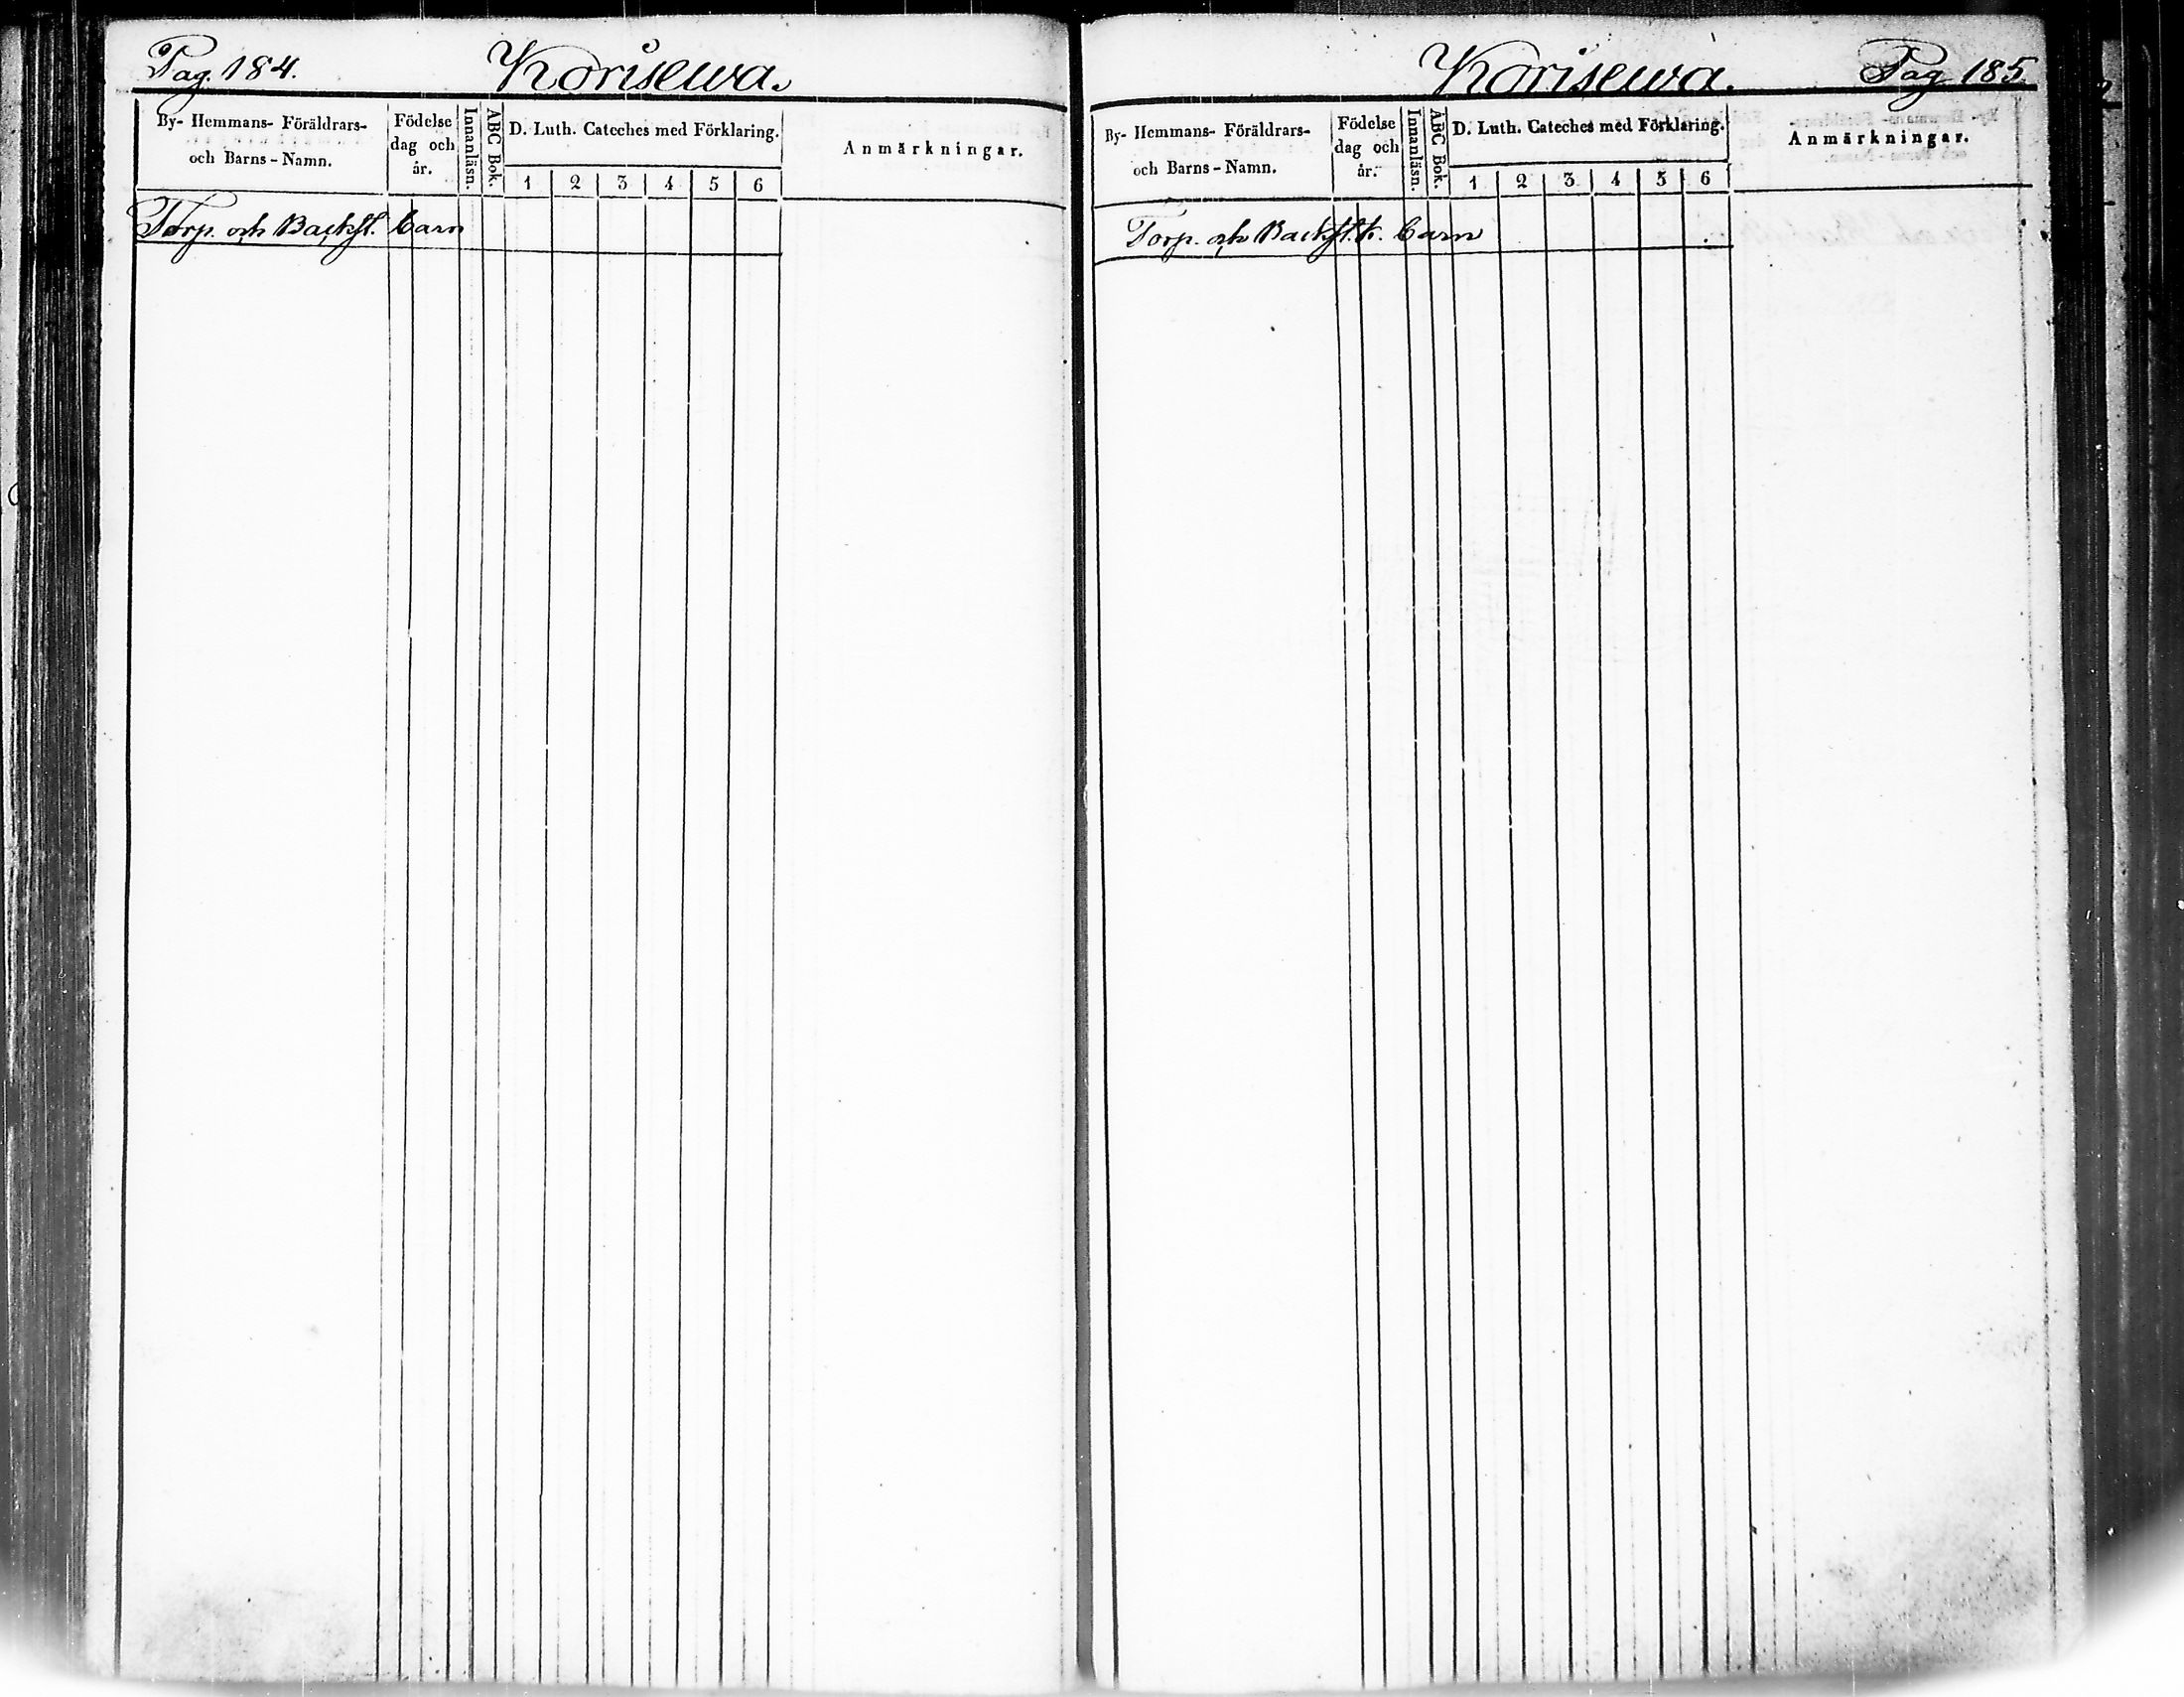 Pag. 184. Korisewa.
By- Hemmans- Föräldrars- och Barns-Namn. Födelse dag och år. Innanläsn. ABC Bok. D. Luth. Cateches med Förklaring. Anmärkningar.
1 2 3 4 5 6
Torp. och Backst. barn
Korisewa. Pag 185
By- Hemmans- Föräldrars- och Barns-Namn. Födelse dag och år. Innanläsn. ABC Bok. D. Luth. Cateches med Förklaring. Anmärkningar.
1 2 3 4 5 6
Torp. och Backst. barn